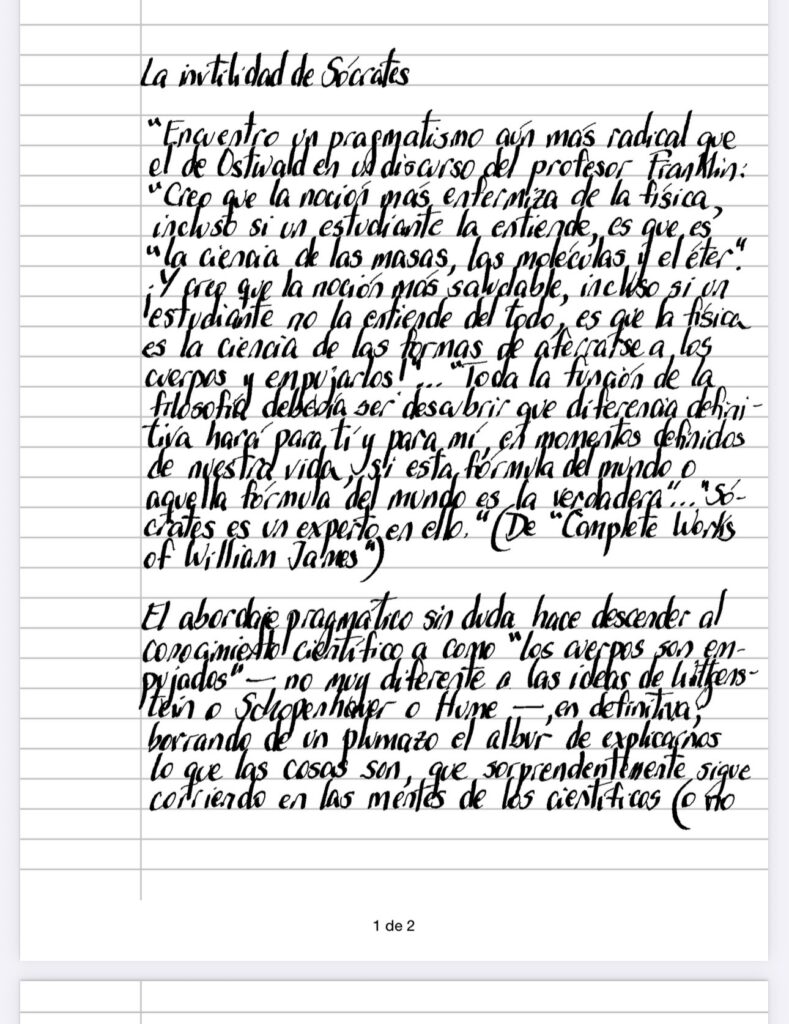 La inutilidad de Sócrates
"Encuentro un pragmatismo aún más radical que
el de Ostwald en un discurso del profesor Franklin:
"Creo que la noción más enfermiza de la física,
incluso si un estudiante la entiende, es que es
"la ciencia de las masas, las moléculas y el éter".
¡Y creo que la noción más saludable, incluso si un
estudiante no la entiende del todo, es que la física
es la ciencia de las formas de aferrarse a los
cuerpos y empujarlos!"... "Toda la función de la
filosofía debería ser descubrir que diferencia defini-
tiva hará para ti y para mí, en momentos definidos
de nuestra vida, si esta fórmula del mundo o
aquella fórmula del mundo es la verdadera"... "Só-
crates es un experto en ello." (De "Complete Works
of William James")
El abordaje pragmático sin duda hace descender al
conocimiento científico a como "los cuerpos son em-
pujados" — no muy diferente a las ideas de Wittgens-
tein o Schopenhauer o Hume —, en definitiva,
borrando de un plumazo el albur de explicarnos
lo que las cosas son, que sorprendentemente sigue
corriendo en las mentes de los científicos (o no
1 de 2